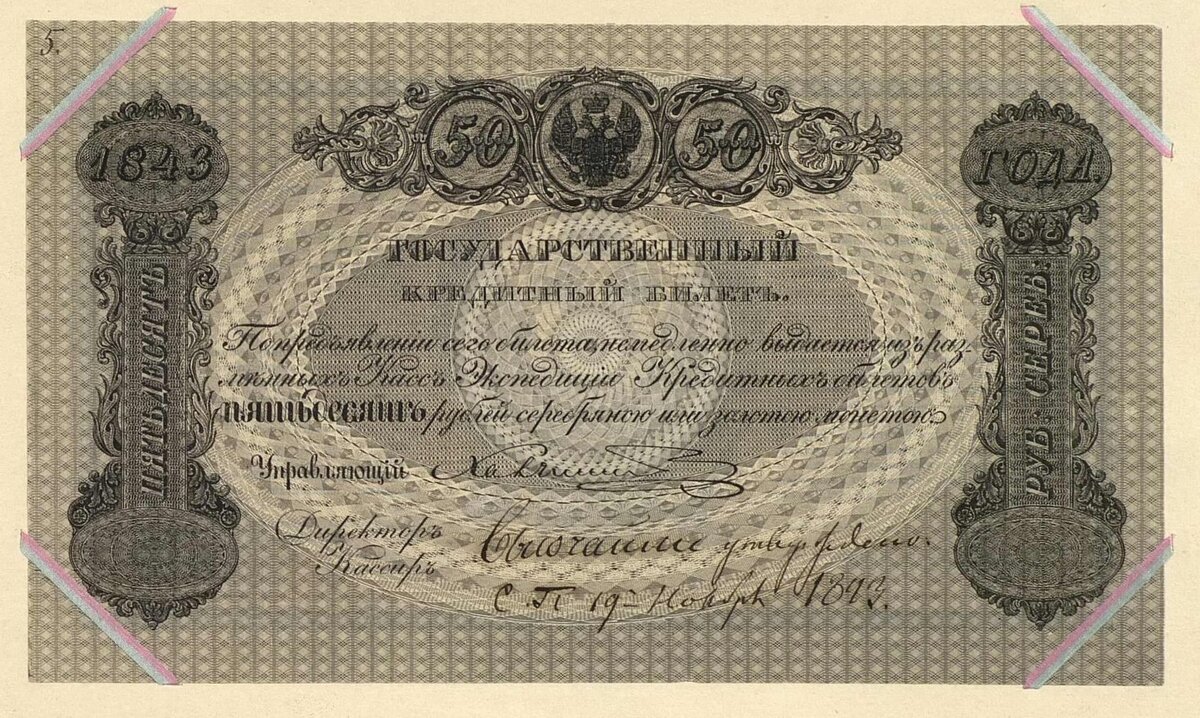 5.
50 50
1843
ГОДА.
ГОСУДАРСТВЕННЫЙ
КРЕДИТНЫЙ БИЛЕТЪ.
По предъявленіи сего билета, немедленно выдается изъ раз-
мѣнныхъ Кассъ Экспедиціи Кредитныхъ билетовъ
ПЯТЬДЕСЯТЪ рублей серебряною или золотою монетою.
ПЯТЬДЕСЯТЪ
РУБ: СЕРЕБ:
Управляющій
Директоръ
Кассиръ
Высочайше утверждено.
С П 19 Ноябр 1843.